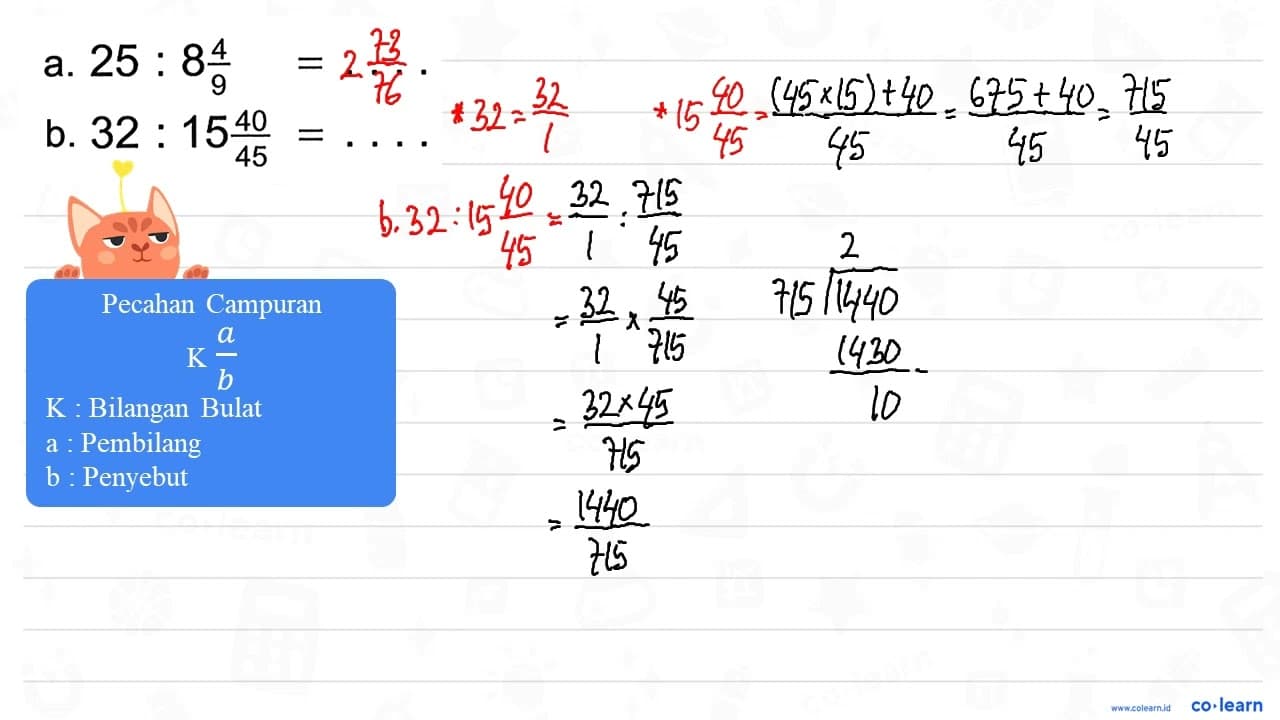 a. 25 : 8 4/9 = 2 73/76 . . . .
b. 32 : 15 40/45 = . . . .
* 32 = 32/1
* 15 40/45 = (45 × 15) + 40/45 = 675 + 40/45 = 715/45
b. 32 : 15 40/45 = 32/1 : 715/45
= 32/1 × 45/715
= 32 × 45/715
= 1440/715
2
715 √1440
1430 -
10
Pecahan Campuran
K a/b
K : Bilangan Bulat
a : Pembilang
b : Penyebut
www.colearn.id co·learn